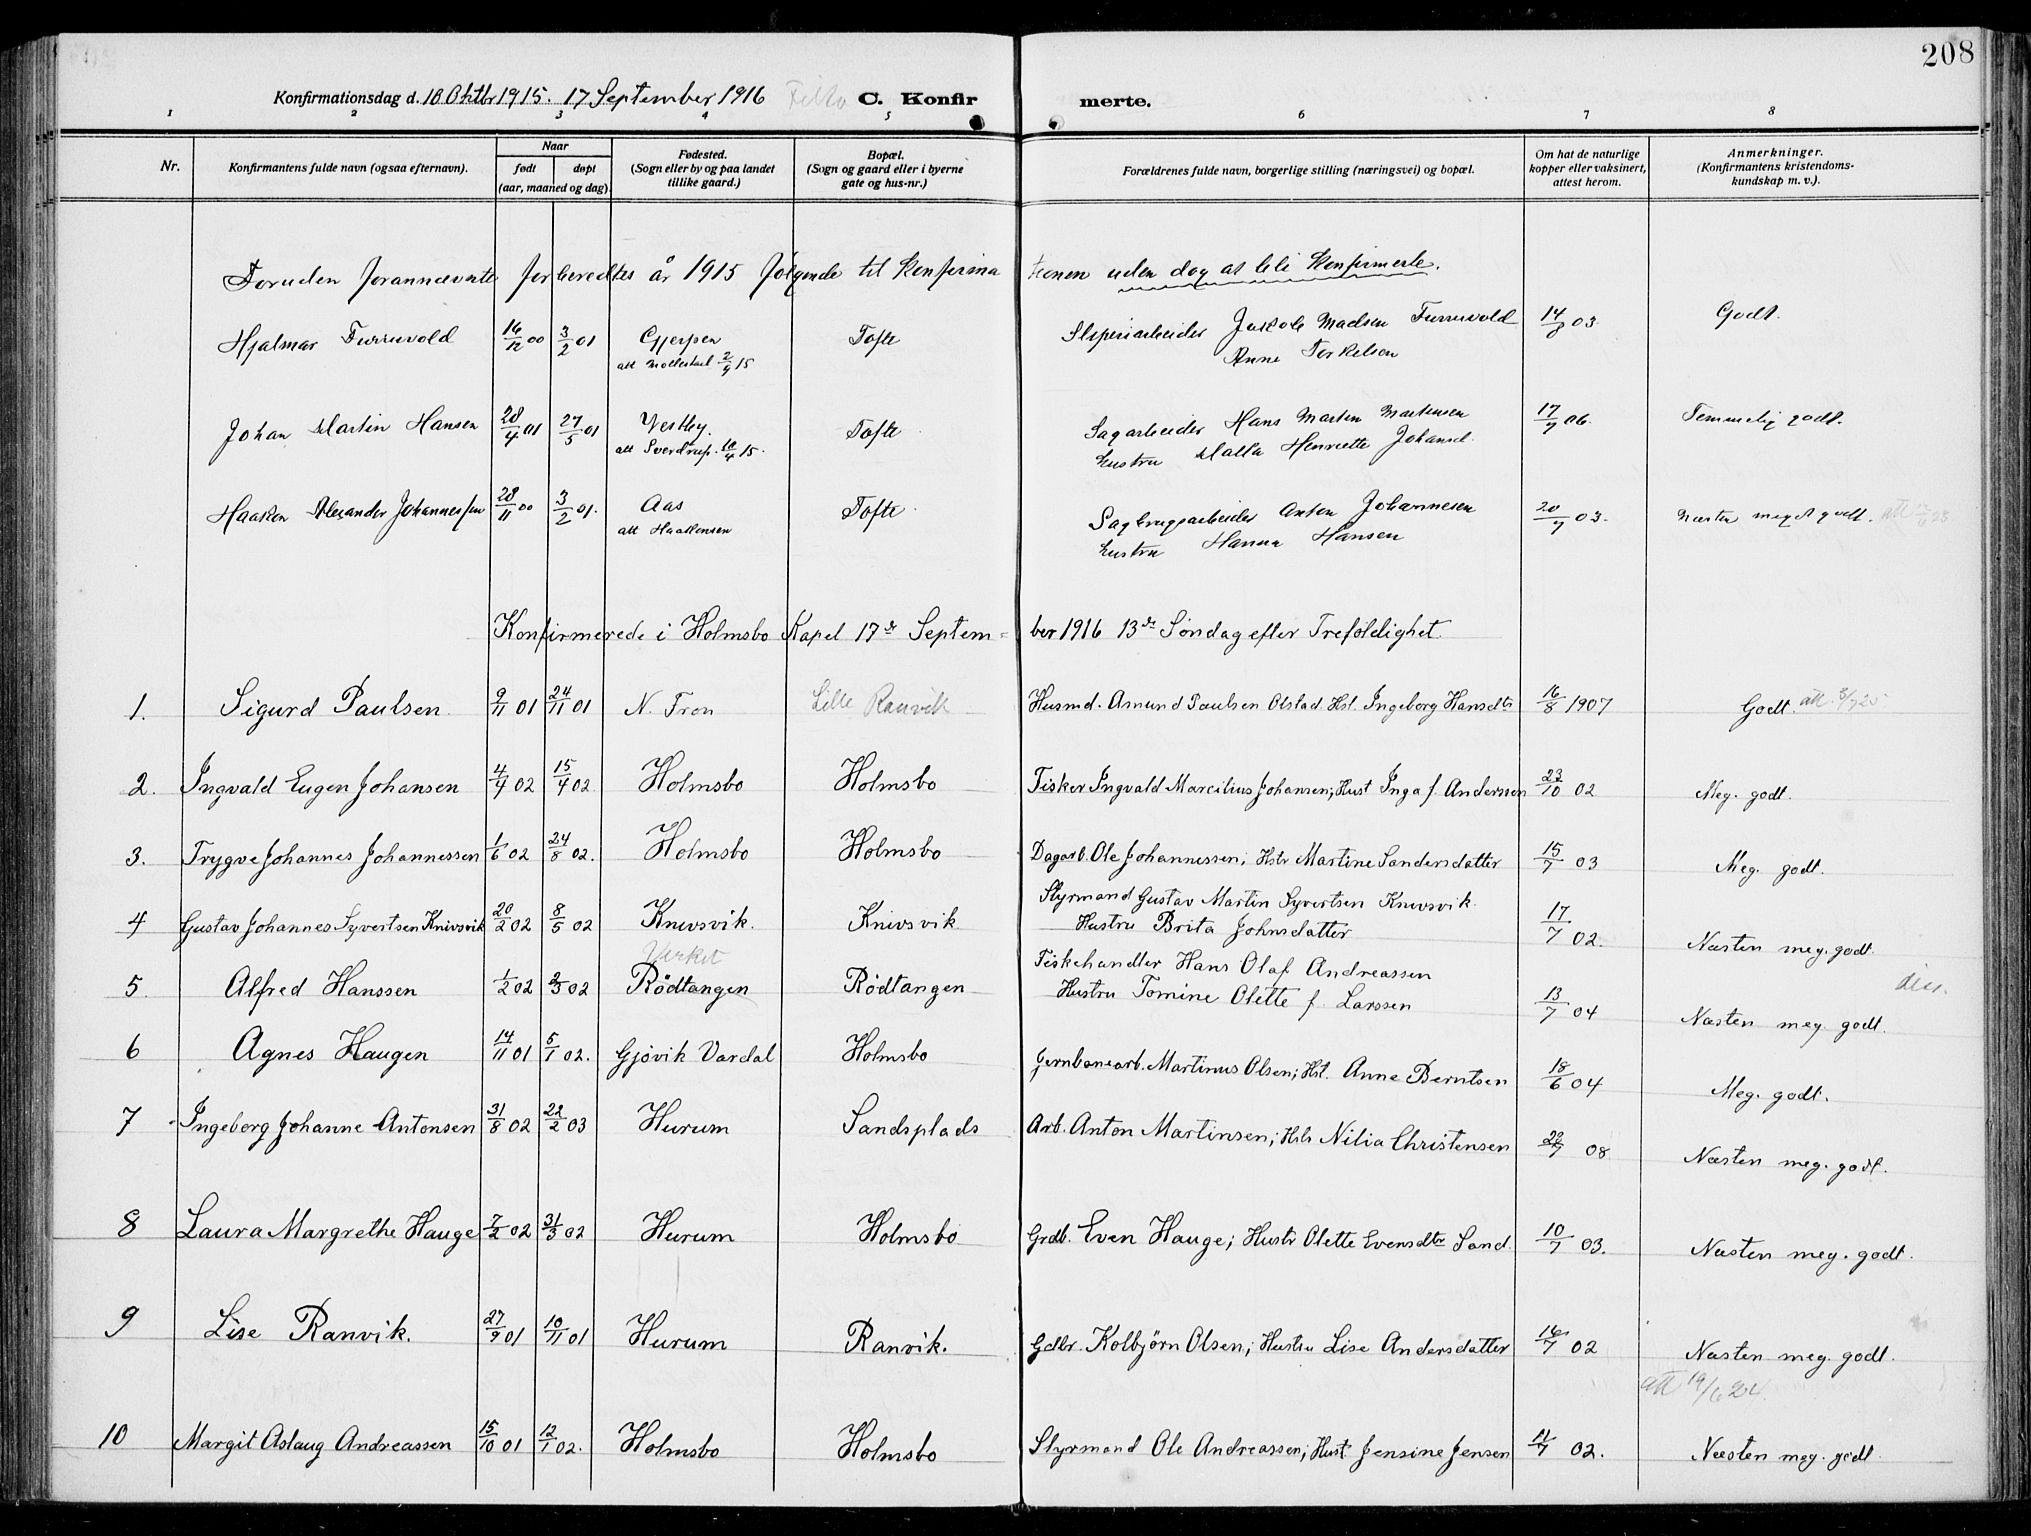 208
Konfirmationsdag d. 18 Oktbr 1915. 17 September 1916 C. Konfirmerte.
1 2 3 4 5 6 7 8
Nr. Konfirmantens fulde navn (ogsaa efternavn). Naar født døpt (aar, maaned og dag). Fødested. (Sogn eller by og paa landet tillike gaard.) Bopæl. (Sogn og gaard eller i byerne gate og hus-nr.) Forældrenes fulde navn, borgerlige stilling (næringsvei) og bopæl. Om hat de naturlige kopper eller vaksinert, attest herom. Anmerkninger. (Konfirmantens kristendomskundskap m. v.).
Foruden forannævnte forberedtes år 1915 følgende til Konfirmationen uden dog at bli Konfirmerte.
Hjalmar Furruvold 16/12 00 3/2 01 Gjerpen Tofte Sliperiarbeider Jakob Madsen Furruvold 14/8 03. Godt.
att Møllestad 2/9 15 Anne Torkelsen
Johan Martin Hansen 28/4 01 27/5 01 Vestby. Tofte Sagarbeider Hans Martin Martinsen 17/9 06. Temmelig godt.
att Sverdrup. 10/4 15. Hustru Malla Henriette Johansd.
Haakon Alexander Johannessen 28/11 00 3/2 01. Aas Tofte Sagbrugsarbeider Anton Johannesen 20/9 03. Næsten meget godt.
att Haakensen Hustru Hanna Hansen
Konfirmerede i Holmsbo Kapel 17de September 1916 13de Søndag efter Trefoldighet.
1. Sigurd Paulsen 9/11 01 24/11 01 N. Fron Lille Ranvik Husmd. Amund Paulsen Olstad. Hst. Ingeborg Hansdtr 16/8 1907 Godt.
2. Ingvald Eugen Johansen 4/4 02 15/4 02 Holmsbo Holmsbo Fisker Ingvald Marcilius Johansen; Hust Inga f. Anderssen 23/10 02 Meg. godt.
3. Trygve Johannes Johannessen 1/6 02 24/8 02. Holmsbo Holmsbo Dagarb. Ole Johannessen; Hstr Martine Sandersdatter 15/7 03 Meg. godt.
4 Gustav Johannes Syvertsen Knivsvik 20/2 02 8/5 02 Knivsvik. Knivsvik Styrmand Gustav Martin Syvertsen Knivsvik. 17/7 02. Næsten meg. godt
Hustru Brita Johnsdatter
Verket
5. Alfred Hanssen 1/2 02 2/3 02 Rödtangen Rödtangen Fiskehandler Hans Olaf Andreassen 13/7 04 Næsten meg. godt.
Hustru Tomine Olette f. Larssen
6 Agnes Haugen 14/11 01 5/1 02. Gjøvik Vardal Holmsbo Jernbanearb. Martinus Olsen; Hst. Anne Berntsen 18/6 04 Meg. godt.
7 Ingeborg Johanne Antonsen 31/8 02 22/2 03 Hurum Sandsplads Arb. Anton Martinsen; Hstr Nilia Christensen 22/7 08 Næsten meg. godt.
8 Laura Margrethe Hauge 7/2 02 31/3 02 Hurum Holmsbo Grdb. Even Hauge; Hustr Olette Evensdtr Sand 10/7 03. Næsten meg. godt.
9 Lise Ranvik. 27/9 01 10/11 01 Hurum Ranvik. Gdbr. Kolbjörn Olsen; Hustru Lise Andersdatter 16/7 02 Næsten meg. godt.
att 19/6 24.
10 Margit Aslaug Andreassen 15/10 01 12/1 02. Holmsbo Holmsbo Styrmand Ole Andreassen; Hust. Jensine Jensen 11/7 02. Næsten meg. godt